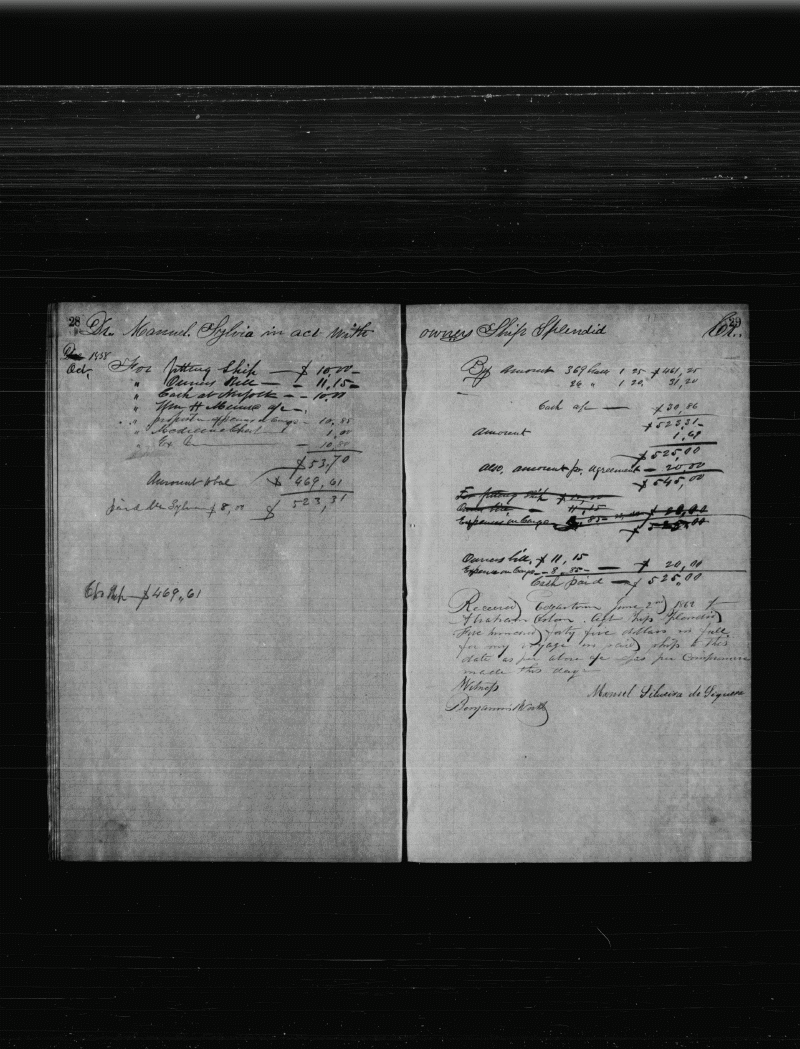 28
Dr. Manuel Sylvia in act with
1858
Oct, For fitting Ship — $ 10.00 —
" Owners Bill — 11,15 —
" Cash at — 10.00
" Wm H a/c —
" expenses 10,85
" Medicine Chest 1,00
" Ex
$ 53,70
Amount total $ 469,61
paid Mr Sylvia $ 8,00 $ 523,31
$ 469,61
29
owners Ship Splendid Cr.
By Amount 369 1 25 $ 461,25
26 " 1 20, 31,20
Cash a/c — $ 30,86
$ 523,31 —
Amount 1,69
$ 525,00
Also, amount pr. agreement — 20 00
$ 545,00
For fitting ship
Expenses on Cargo
Owners bill, $ 11, 15
Expenses on Cargo — 8, 85 — $ 20,00
Cash paid — $ 525,00
Received Edgartown June 2nd of
Abraham Osborn Agt Ship Splendid
Five hundred forty five dollars in full
for my voyage in said ship to this
date as per above a/c as per Compromise
made this day
Witness
Manuel Silveira de
Benjamin